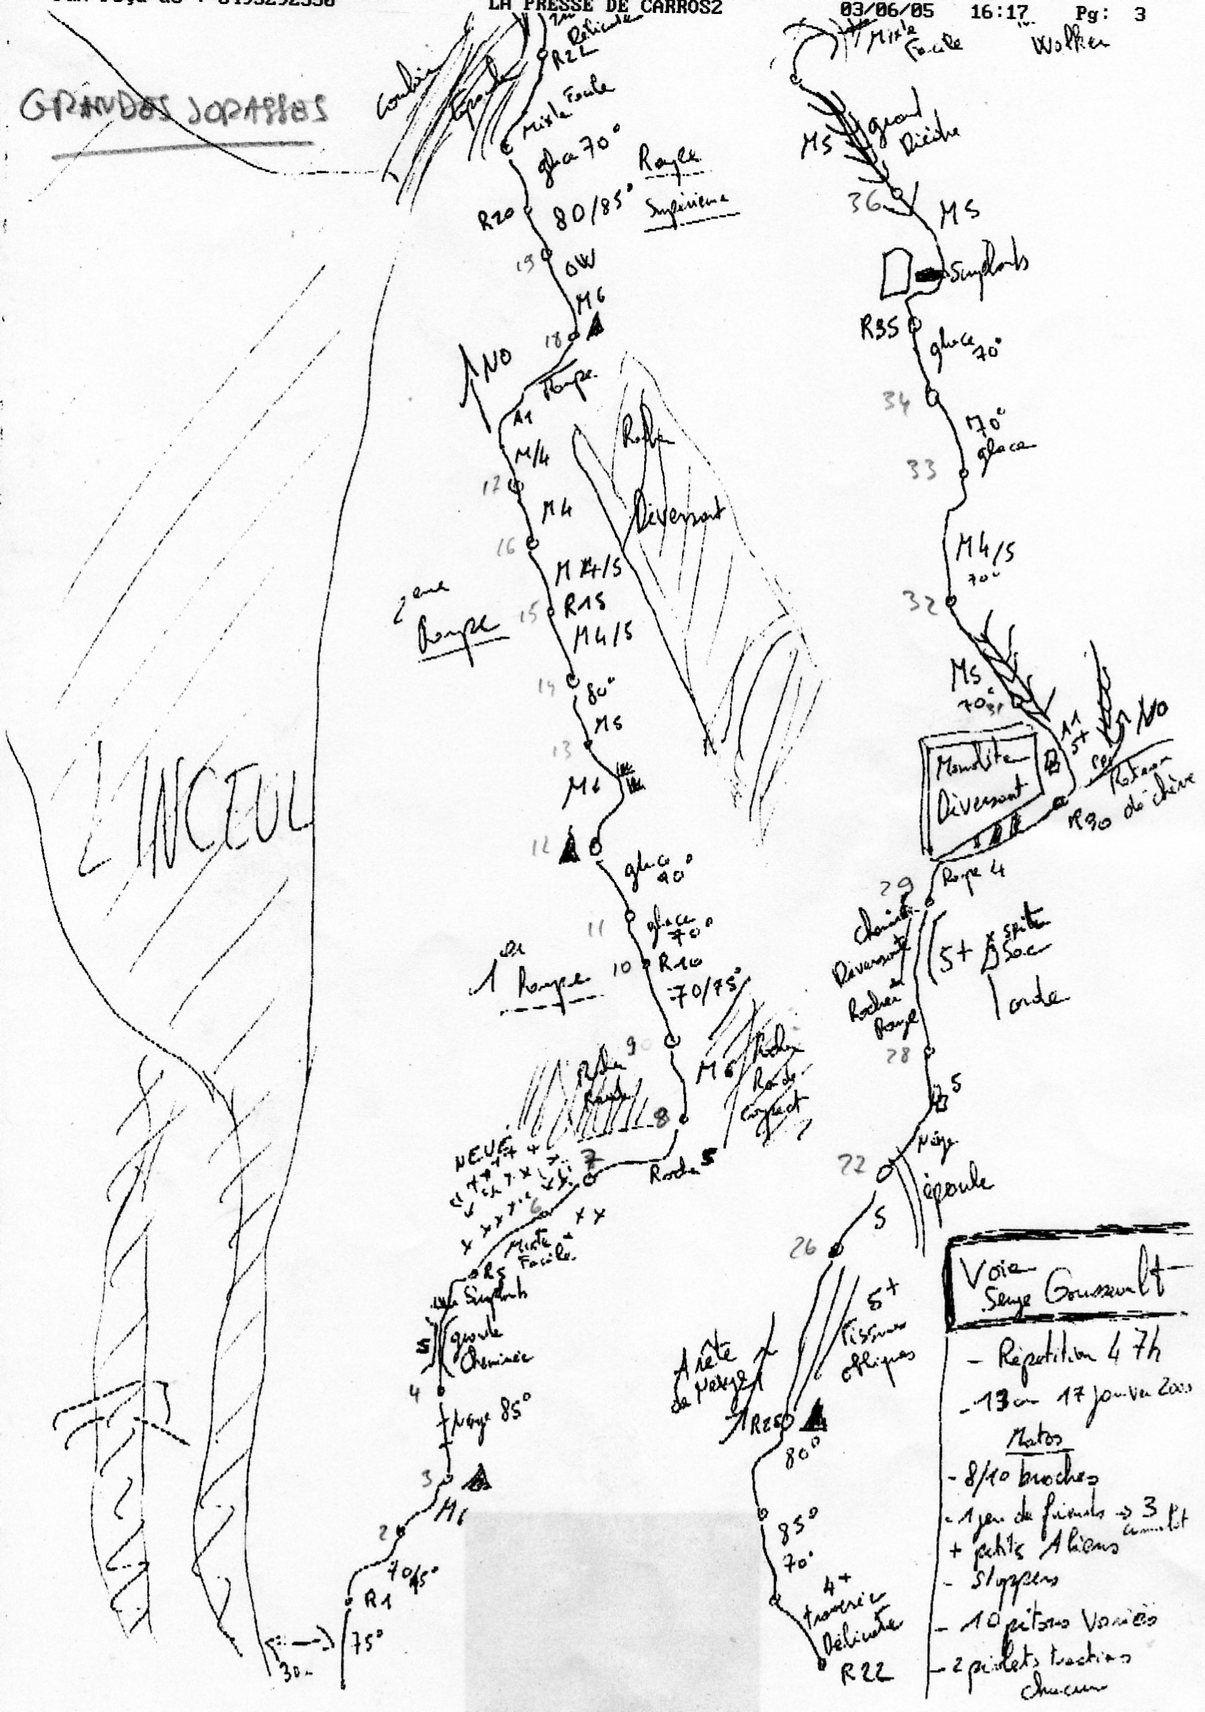 LA PRESSE DE CARROS2 03/06/05 16:17 Pg: 3
GRANDES JORASSES
couloir
épaule
R22
Mixte Facile
glace 70°
Rampe
Supérieure
R20
80/85°
19
OW
M6
18
NO
Rampe
A1
M/4
17
M4
16
M4/5
15 R15
M4/5
2eme
Rampe
14
80°
M5
13
M6
12
glace
90°
11
glace
70°
1ere
Rampe
10 R10
70/75°
9
M6
Rocher
Raide
compact
Rocher
Raide
8
Rocher 5
NEVÉ
7
6
Mixte
Facile
R5
Surplombs
5
goulotte
Cheminée
4
Neige 85°
3
M6
2
R1
75°
30m
LINCEUL
Rocher
Déversant
Mixte
Facile
Walker
grand
Dièdre
M5
36
M5
Surplombs
R35
glace
70°
34
70°
glace
33
M4/5
70°
32
M5
70°
31
A1
5+
NO
Monolite
Déversant
R30
Relais
de chèvre
Rampe 4
29
Cheminée
Déversante
Rocher
Rouge
5+
28
5
Neige
épaule
S
26
5+
Fissures
obliques
Arête
de Neige
R25
80°
85°
70°
4+
traversée
Délicate
R22
Voie
Serge Gousseault
- Répétition 47h
- 13 au 17 janvier 2000
Matos
- 8/10 broches
- 1 jeu de friends → 3 camalot
+ petits Aliens
- Stoppers
- 10 pitons Variés
- 2 piolets traction
chacun